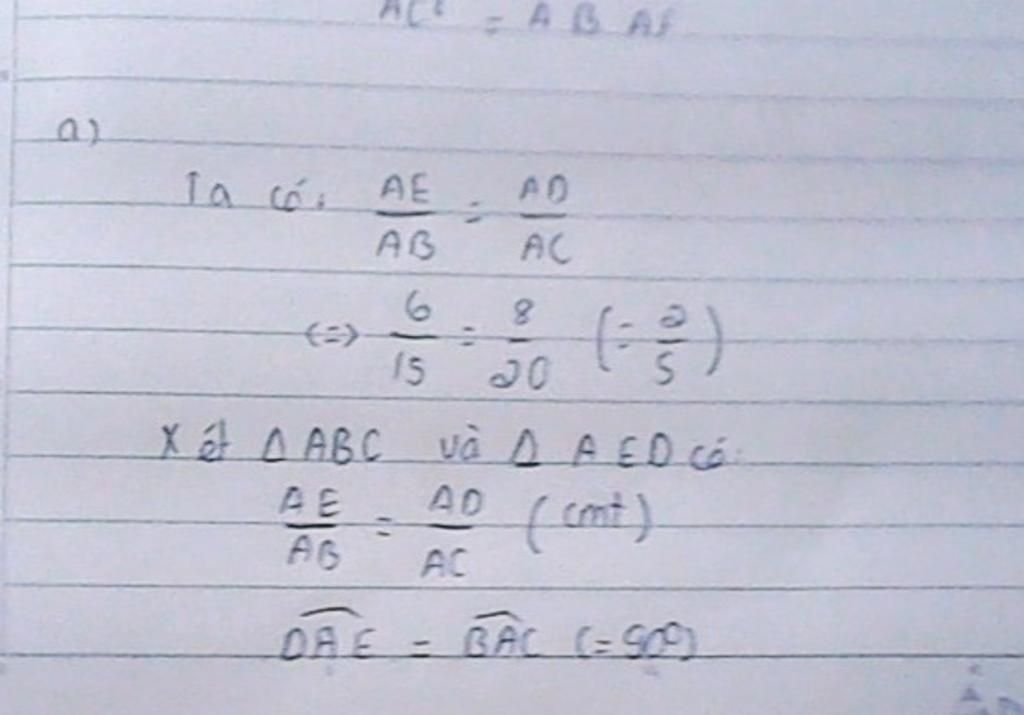 = A B A
a)
Ta có: AE/AB = AD/AC
<=> 6/15 = 8/20 (= 2/5)
Xét Δ ABC và Δ AED có:
AE/AB = AD/AC (cmt)
DAE = BAC (= 90°)